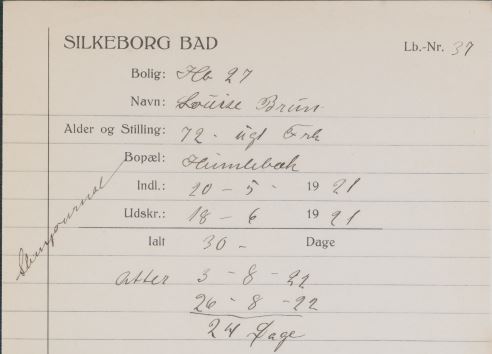 SILKEBORG BAD
Lb.-Nr. 37
Bolig: Hb 27
Navn: Louise Brun
Alder og Stilling: 72 - ugt Frk
Bopæl: Humlebæk
Indl.: 20 - 5 - 19 21
Udskr.: 18 - 6 19 21
Ialt 30 - Dage
atter 3 - 8 - 22
26 - 8 - 22
24 Dage